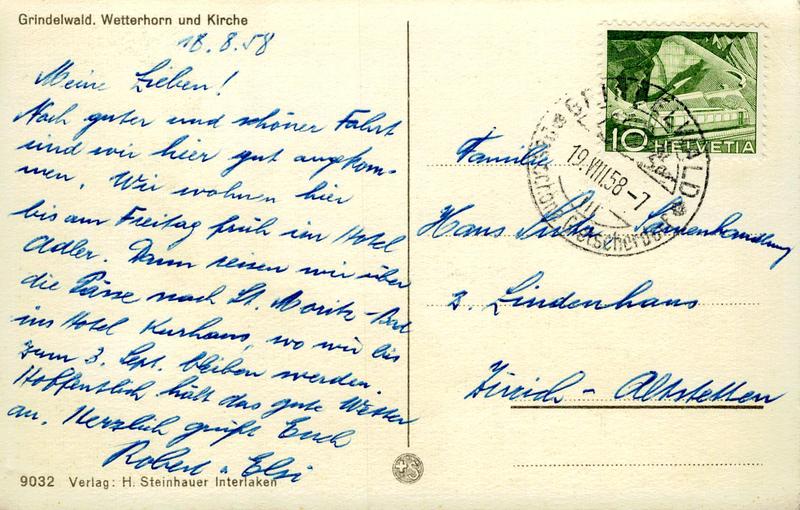 Grindelwald. Wetterhorn und Kirche
18.8.58
Meine Lieben!
Nach guter und schöner Fahrt
sind wir hier gut angekom-
men. Wir wohnen hier
bis am Freitag früh im Hotel
Adler. Dann reisen wir über
die Pässe nach St. Moritz-Bad
ins Hotel Kurhaus, wo wir bis
zum 3. Sept. bleiben werden.
Hoffentlich hält das gute Wetter
an. Herzlich grüßt Euch
Robert u. Elsi
9032 Verlag: H. Steinhauer Interlaken
+S
10 HELVETIA
GRINDELWALD
19.VIII.58-7
Gletscherdorf
Familie
Hans Samenhandlung
z. Lindenhaus
Zürich-Altstetten